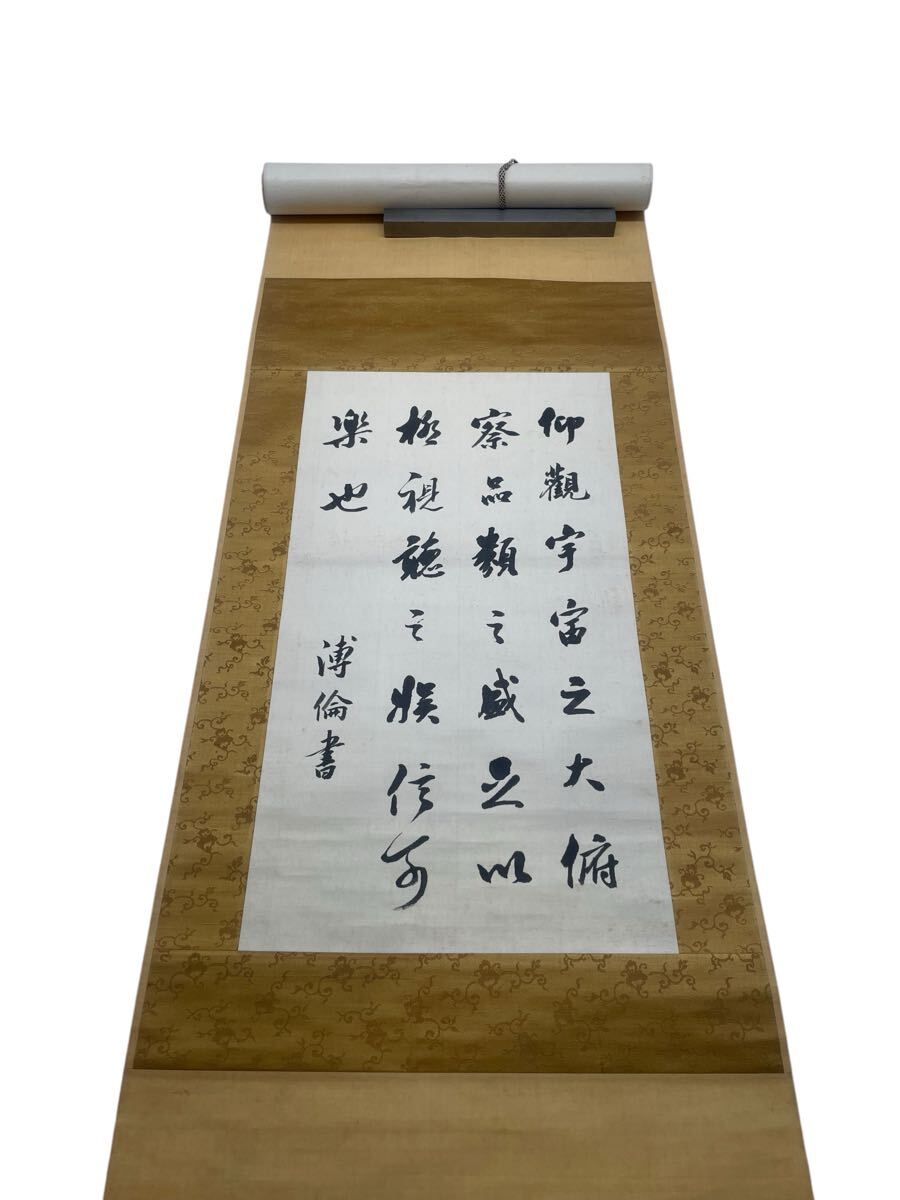 仰觀宇宙之大俯
察品類之盛足以
極視聽之娛信可
樂也
溥倫書